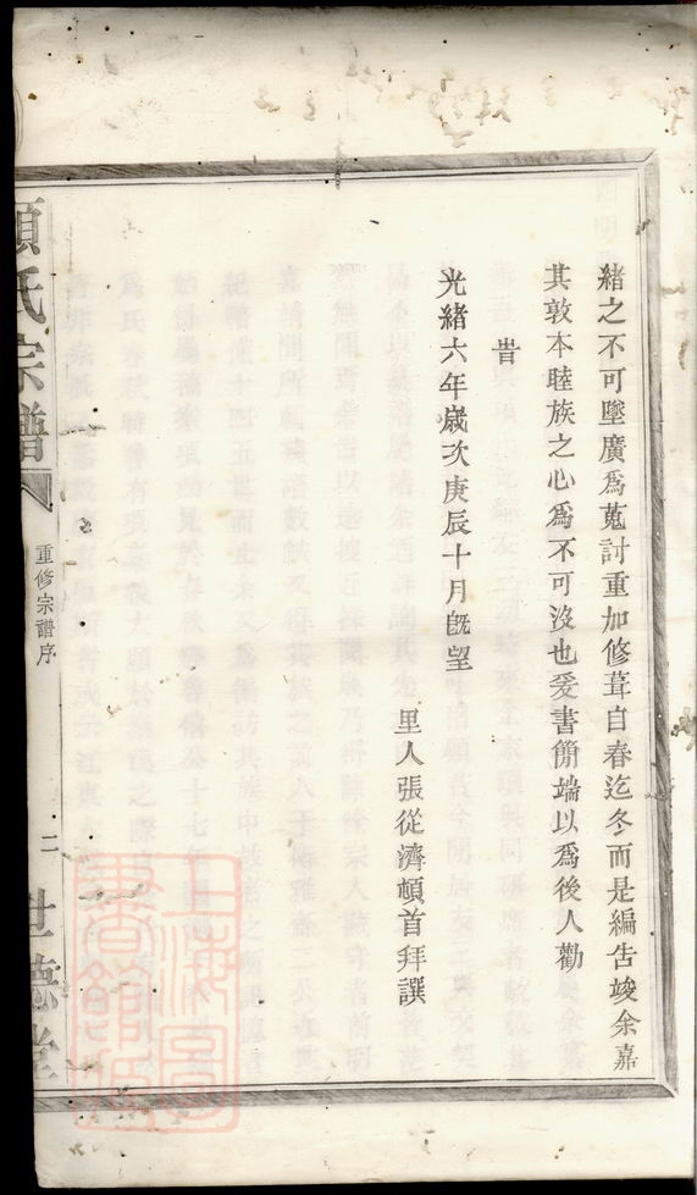 緒之不可墜廣爲蒐討重加修葺自春迄冬而是編告竣余嘉
其敦本睦族之心爲不可沒也爰書簡端以爲後人勸
旹
光緒六年歲次庚辰十月旣望
里人張從濟頓首拜譔
項氏宗譜
重修宗譜序
二
世德堂
上海圖書館藏